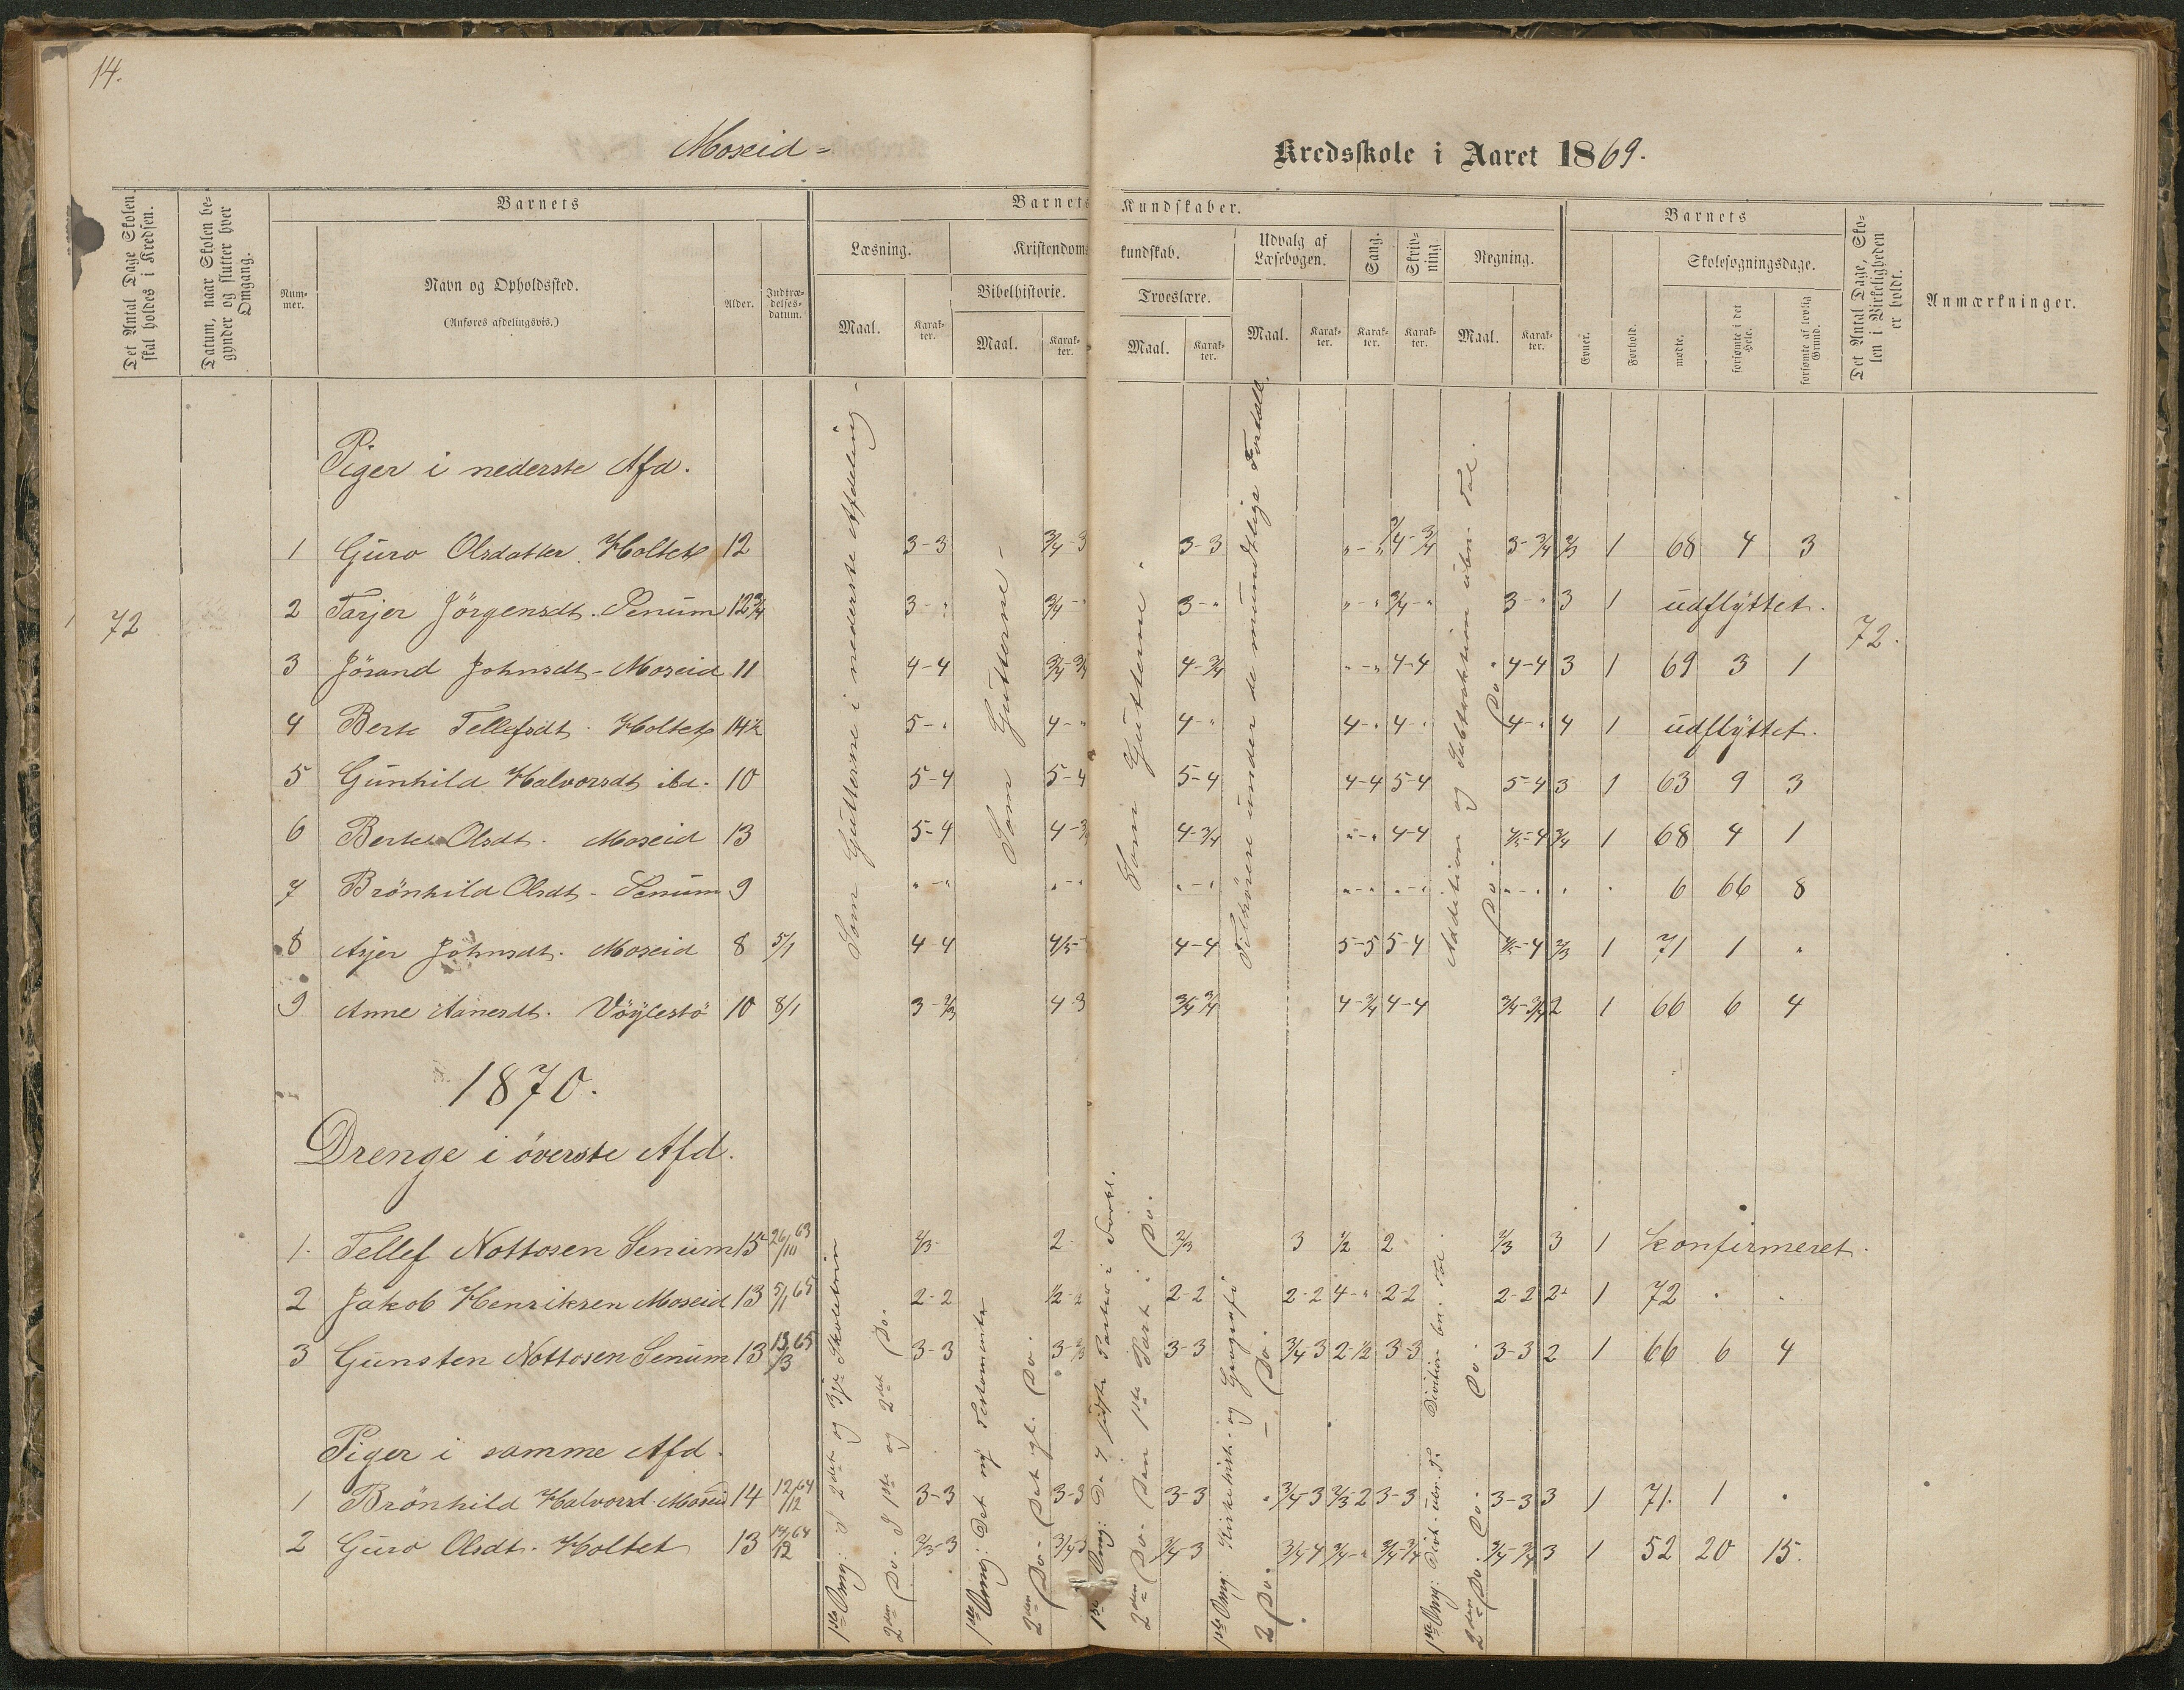 14.
Moseid =
Kredsskole i Aaret 1869.
Det Antal Dage Skolen skal holdes i Kredsen.
Datum, naar Skolen begynder og slutter hver Omgang.
Barnets
Num-mer.
Navn og Opholdssted.
(Anføres afdelingsvis.)
Alder.
Indtræ-delses-datum.
Barnets Kundskaber.
Læsning.
Maal.
Karak-ter.
Kristendomskundskab.
Bibelhistorie.
Maal.
Karak-ter.
Troeslære.
Maal.
Karak-ter.
Udvalg af Læsebogen.
Maal.
Karak-ter.
Sang.
Karak-ter.
Skriv-ning.
Karak-ter.
Regning.
Maal.
Karak-ter.
Barnets
Evner.
Forhold.
Skolesøgningsdage.
mødte.
forsømte i det Hele.
forsømte af lovlig Grund.
Det Antal Dage, Sko-len i Virkeligheden er holdt.
Anmærkninger.
Piger i nederste Afd.
1 Guro Olsdatter Holtet 12 3-3 3/4-3 3-3 "-" 3/4-3/4 3-3/4 2/3 1 68 4 3
2 Tarjer Jörgensdt. Senum 12 3/4 3-" 3/4-" 3-" "-" 3/4-" 3-" 3 1 udflyttet.
72
72.
3 Jörand Johnsdt - Moseid 11 4-4 3/4-3/4 4-3/4 "-" 4-4 4-4 3 1 69 3 1
4 Berte Tellefsdt Holtet 14 1/2 5-" 4-" 4-" 4-" 4-" 4-" 4 1 udflyttet.
5 Gunhild Halvorsdt ibd. 10 5-4 5-4 5-4 4-4 5-4 5-4 3 1 63 9 3
6 Berte Olsdt. Moseid 13 5-4 4-3/4 4-3/4 "-" 4-4 4/5-4 3/4 1 68 4 1
7 Brönhild Olsdt - Senum 9 "-" "-" "-" "-" "-" "-" " " 6 66 8
8 Asjer Johnsdt. Moseid 8 5/1 4-4 4/5- 4-4 5-5 5-4 4/5-4 2/3 1 71 1 "
9 Anne Aanesdt. Vöylestö 10 8/1 3-2/3 4-3 3/4-3/4 4-3/4 4-4 3/4-3/4 2 1 66 6 4
Som Gutterne i nederste Afdeling -
Som Gutterne -
Som Gutterne.
Tilhörere under de mundtlige Foredrag.
Addition og Subtraktion ubn. Tal.
Do
Do
1870.
Drenge i överste Afd.
1. Tellef Nottosen Senum 15 26/10 63 2/3- 2- 2/3 3 1/2 2 2/3 3 1 konfirmeret.
2 Jakob Henriksen Moseid 13 5/1 65 2-2 1/2-2 2-2 2-2 4-" 2-2 2-2 2+ 1 72 " "
3 Gunsten Nottosen Senum 13 13/3 65 3-3 3-2/3 3-3 3/4-3 2-1/2 3-3 3-3 2 1 66 6 4
Piger i samme Afd.
1 Brönhild Halvorsd. Moseid 14 12/12 64 3-3 3-3 3-3 3/4-3 2/3-2 3-3 3-3 3 1 71. 1 "
2 Guro Olsdt. Holtet 13 12/12 64 2/3-3 3/4-3 3/4-3 3/4-4 3/4-" 3/4-3/4 3/4-3/4 3 1 52 20 15.
1ste Omg: I 2det og 3je Skoletrin
2den Do - I 1ste og 2det Do.
1ste Omg: Det ny Testamente
2den Do - Det gl. Do.
1ste Omg: De 4 sidste Parter i Forkl.
2den Do - Den 1ste Part i Do.
1ste Omg: Kirkehist. og Geografi
2 Do. - Do.
1ste Omg: Divis. ubn. T. Division bn. Tal.
2den Do. Do. Do.